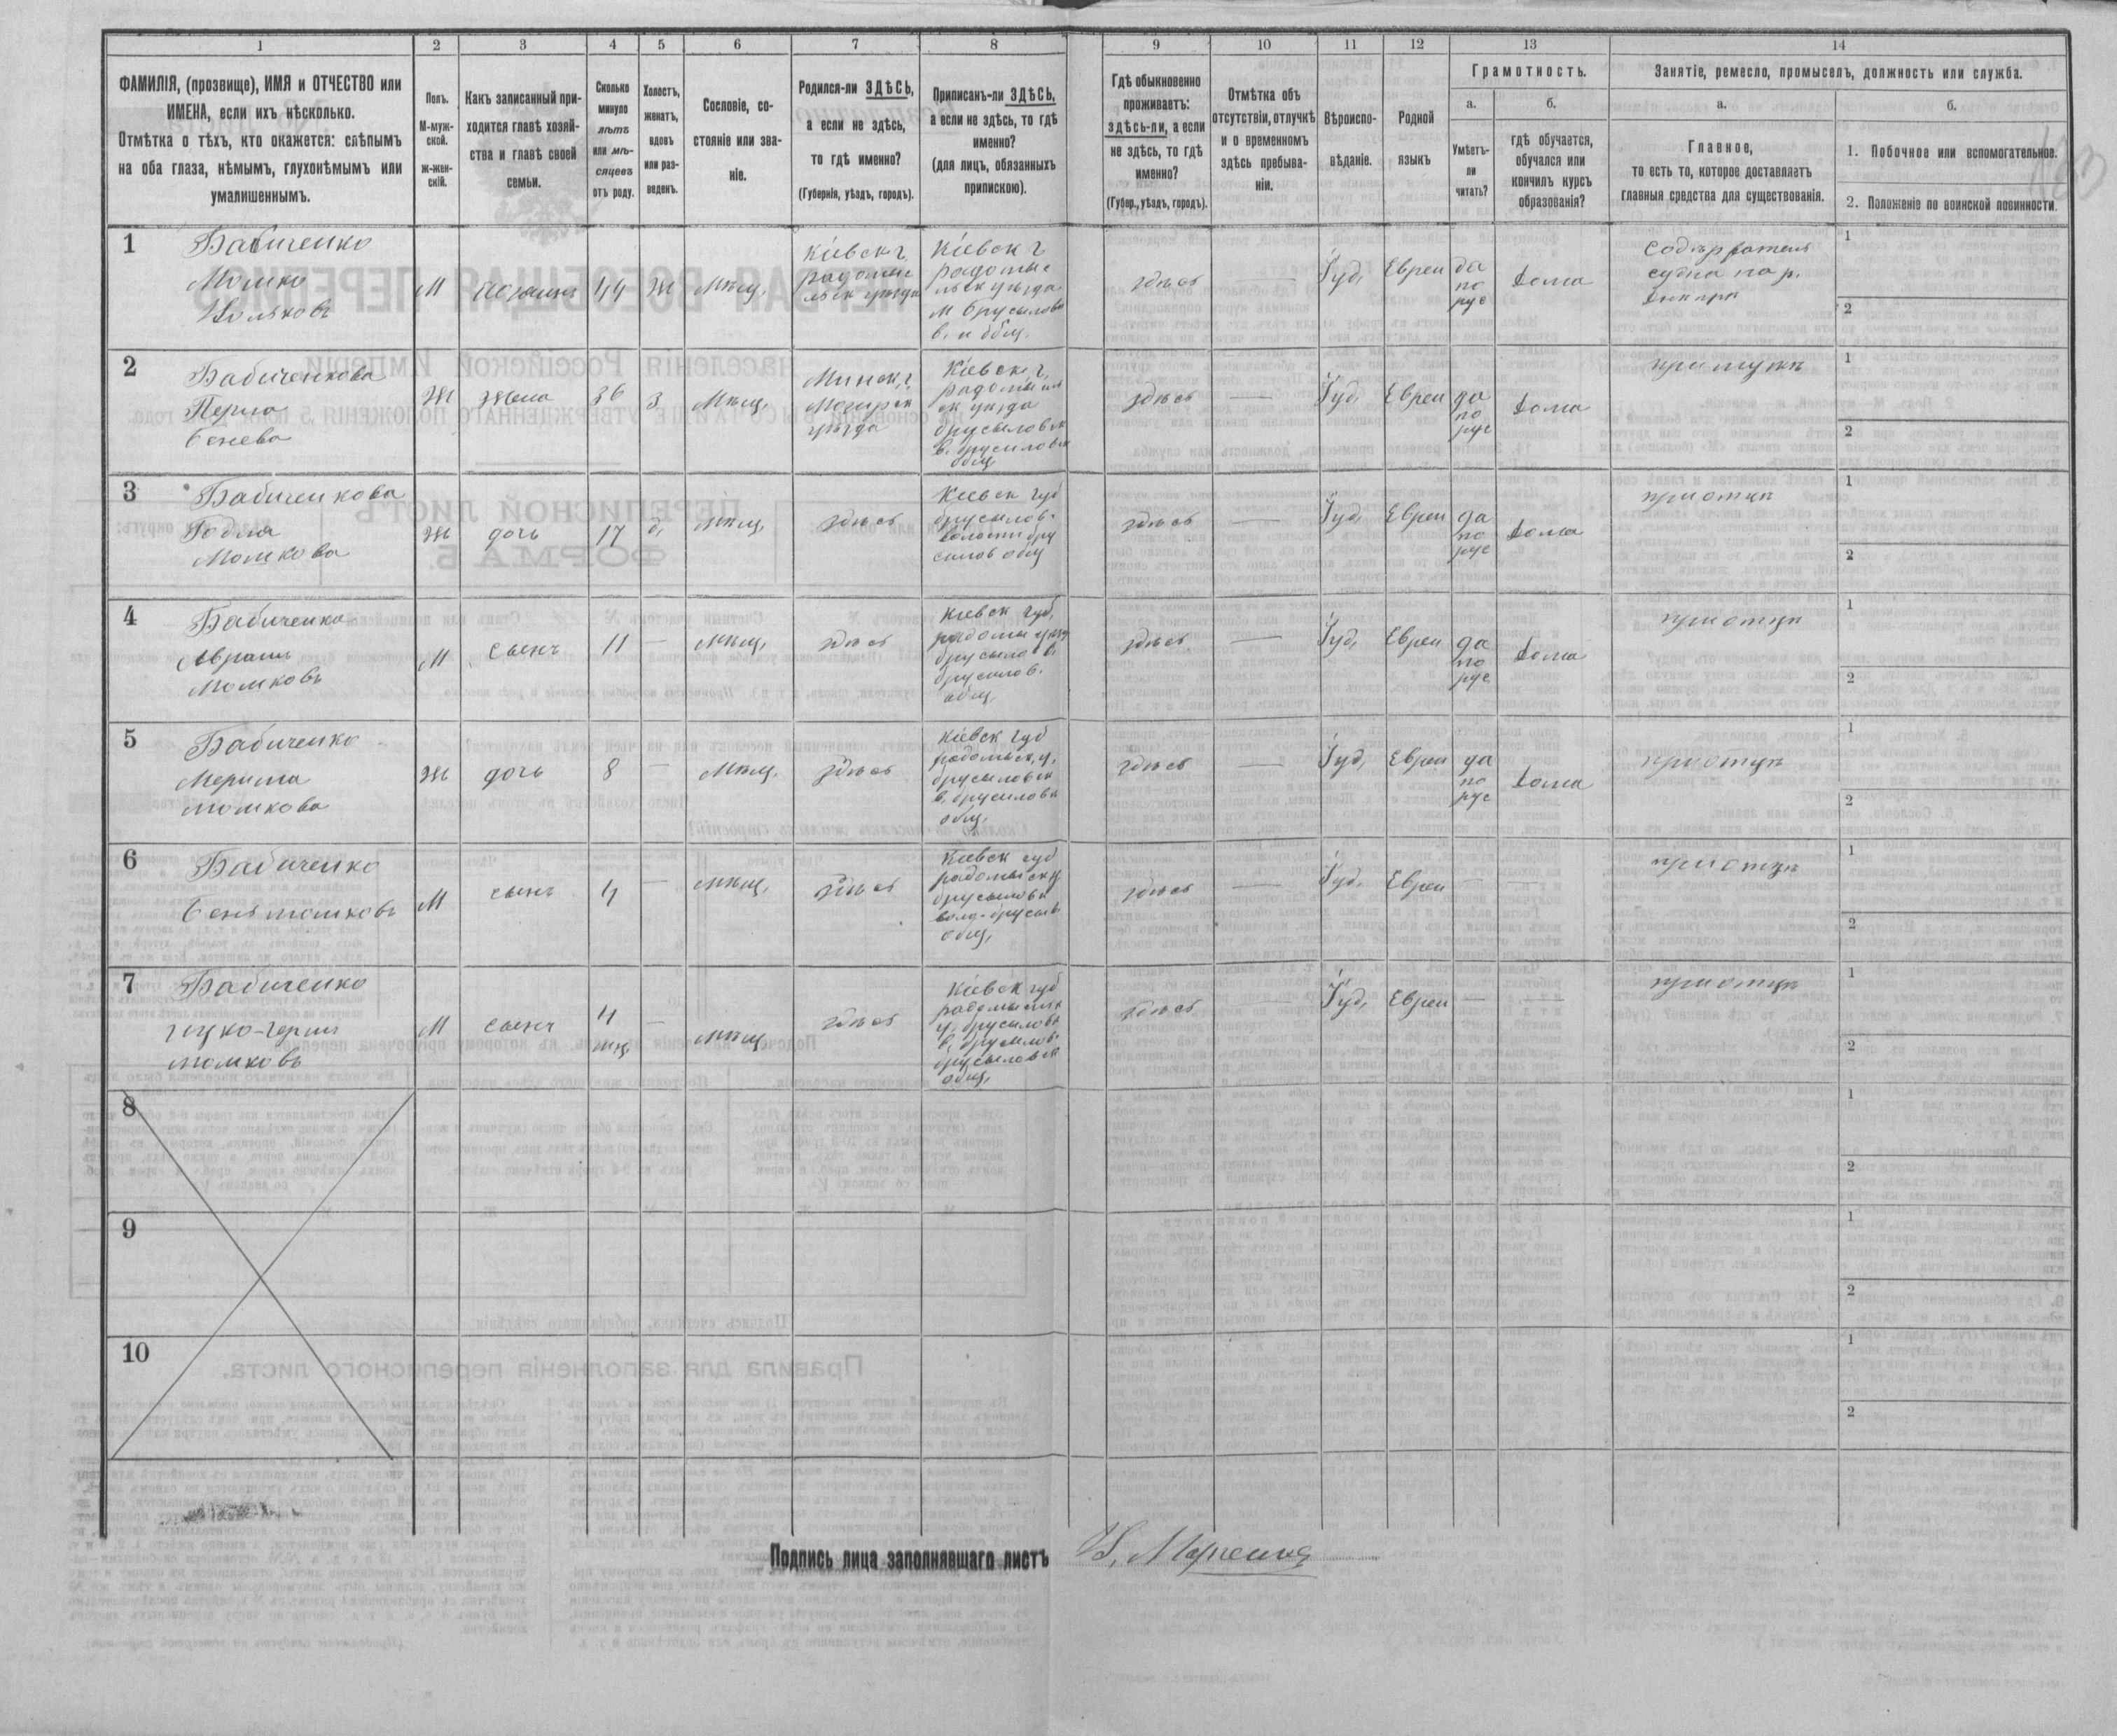 1
2
3
4
5
6
7
8
9
10
11
12
13
14
ФАМИЛІЯ, (прозвище), ИМЯ и ОТЧЕСТВО или
ИМЕНА, если ихъ нѣсколько.
Отмѣтка о тѣхъ, кто окажется: слѣпымъ
на оба глаза, нѣмымъ, глухонѣмымъ или
умалишеннымъ.
Полъ.
М-муж-
ской.
ж-жен-
скій.
Какъ записанный при-
ходится главѣ хозяй-
ства и главѣ своей
семьи.
Сколько
минуло
лѣтъ
или мѣ-
сяцевъ
отъ роду.
Холостъ,
женатъ,
вдовъ
или раз-
веденъ.
Сословіе, со-
стояніе или зва-
ніе.
Родился-ли ЗДѢСЬ,
а если не здѣсь,
то гдѣ именно?
(Губернія, уѣздъ, городъ).
Приписанъ-ли ЗДѢСЬ,
а если не здѣсь, то гдѣ
именно?
(для лицъ, обязанныхъ
припискою).
Гдѣ обыкновенно
проживаетъ:
здѣсь-ли, а если
не здѣсь, то гдѣ
именно?
(Губер., уѣздъ, городъ).
Отмѣтка объ
отсутствіи, отлучкѣ
и о временномъ
здѣсь пребыва-
ніи.
Вѣроиспо-
вѣданіе.
Родной
языкъ
Грамотность.
а.
Умѣетъ-
ли
читать?
б.
гдѣ обучается,
обучался или
кончилъ курсъ
образованія?
Занятіе, ремесло, промыселъ, должность или служба.
а.
Главное,
то есть то, которое доставляетъ
главныя средства для существованія.
б.
1. Побочное или вспомогательное.
2. Положеніе по воинской повинности.
1
Бабиченко
Мошко
Вольковъ
М
хозяинъ
44
Ж
Мѣщ.
Кіевск г.
радомыс
льск уѣзда
Кіевск г
радомыс
льск уѣзда
м Брусылова
в. и общ.
здѣсь
Іуд,
Евреи
да
по
рус
дома
судна на р.
1
2
2
Бабиченкова
Перла
Бенева
Ж
Жена
36
з
Мѣщ.
Минск, г.
Мозырск
уѣзда
Кіевск г,
радомысл
ск уѣзда
брусыловск
в. брусиловск
общ
здѣсь
Іуд,
Евреи
да
по
рус
дома
при мужѣ
1
2
3
Бабиченкова
Годля
Мошкова
Ж
дочь
17
д,
мѣщ,
здѣсь
Кіевск губ
брусылов.
волости бру
силов общ
здѣсь
Іуд,
Евреи
да
по
рус
дома
при отцѣ
1
2
4
Бабиченко
Аврамъ
Мошковъ
М
сынъ
11
мѣщ,
здѣсь
Кіевск губ,
радомы уѣз
брусылов в.
брусилов.
общ,
здѣсь
Іуд,
Евреи
да
по
рус
дома
при отцѣ
1
2
5
Бабиченко
Мерима
мошкова
Ж
дочь
8
Мѣщ.
здѣсь
Кіевск губ
радомыск у,
брусыловск
в, брусилова
общ,
здѣсь
Іуд,
Евреи
да
по
рус
дома
при отцѣ
1
2
6
Бабиченко
Бень мошковъ
М
сынъ
4
мѣщ,
здѣсь
Кіевск губ
радомыск у
брусылова
волд. брусыл
общ,
здѣсь
Іуд,
Евреи
при отцѣ
1
2
7
Бабиченко
ицко-герш
мошковъ
М
сынъ
4
мѣц
мѣщ
здѣсь
Кіевск губ
радомысльк
у, брусылова
в, брусылов.
брусыловск
общ,
здѣсь
Іуд,
Евреи
при отцѣ
1
2
8
1
2
9
1
2
10
1
2
Подпись лица заполнявшаго листъ